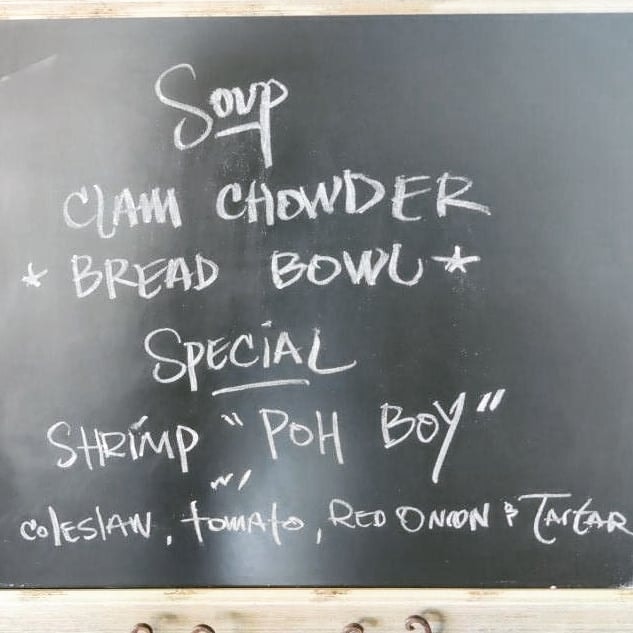 Soup
CLAM CHOWDER
* BREAD BOWL *
SPECIAL
SHRIMP "POH BOY"
w/
coleslaw, tomato, RED ONION & TARTAR